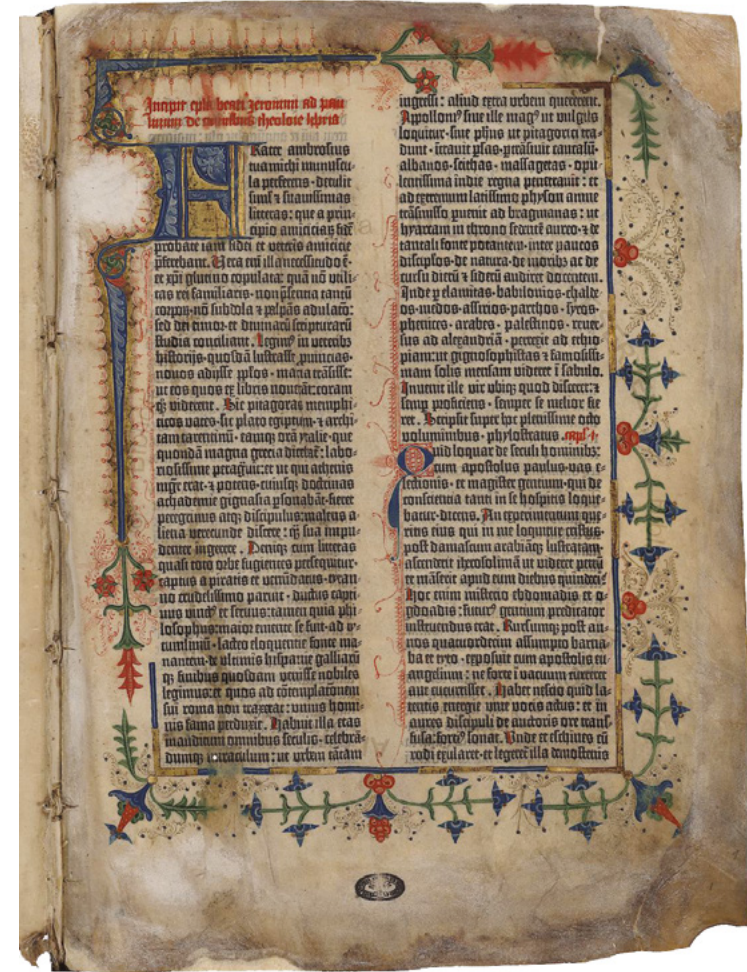 Incipit epla beati Jeronimi ad pau
linum de omnibus
Frater ambrosius
tua michi munuscu-
la perferens· detulit
simul et suavissimas
litteras: que a prin-
cipio amicicias· fidē
probate iam fidei et veteris amicicie
p̄ferebant. Vera enī illa necessitudo ē·
et xp̄i glutino copulata: quā nō utili-
tas rei familiaris· non p̄sentia tantū
corpoꝝ· nō subdola ⁊ palpās adulacō:
sed dei timor· et divinarū scripturarū
studia conciliant. Legimꝰ in veteribꝫ
historijs· quosdā lustrasse p̄vincias·
novos adijsse ppl̄os· maria trāsisse:
ut eos quos ex libris noverāt: coram
qꝫ viderent. Sic pitagoras memphi-
ticos vates· sic plato egiptum· ⁊ archi-
tam tarentinū· eamqꝫ orā ytalie· que
quondā magna grecia dicebat̄: labo-
riosissime peragrvit: et ut qui athenis
mgr̄ erat· ⁊ potens· cuiusqꝫ doctrinas
achademie gignasia ꝑsonabāt· fieret
peregrinus atqꝫ discipulus: malens a-
liena verecunde discere: qꝫ sua impu-
denter ingerere. Deniqꝫ cum litteras
quasi toto orbe fugientes persequitur·
captus a piratis et venūdatus· tyran-
no crudelissimo paruit· ductus capti-
vus vinctꝰ et servus: tamen quia phi-
losophus: maior emente se fuit· ad ty-
tumliviū· lacteo eloquentie fonte ma-
nantem· de ultimis hispanie galliarū
qꝫ finibus· quosdam venisse nobiles
legimus: et quos ad cōtemplationem
sui roma non traxerat: unius homi-
nis fama perduxit. Habuit illa etas
inauditum omnibus seculis· celebrā-
dumqꝫ miraculum: ut urbem tātam
ingressi: aliud extra urbem quererent.
Appollonꝰ sive ille magꝰ ut vulgus
loquitur· sive phūs ut pitagorici tra-
dunt· ītravit ꝑsas· ꝑtrāsivit caucasū·
albanos· scithas· massagetas· opu-
lentissima indie regna penetravit: et
ad extremum latissimo physon amne
trāsmisso ꝑvenit ad bragmanas: ut
hyarcam in throno sedentē aureo· ⁊ de
tantali fonte potantem· inter paucos
discipl̄os· de natura· de moribꝫ ac de
cursu dierū ⁊ siderū audiret docentem.
Inde ꝑ elamitas· babilonios· chalde-
os· medos· assirios· parthos· syros·
phenices· arabes· palestinos· rever-
sus ad alexandriā· perrexit ad ethio-
piam: ut gignosophistas ⁊ famosissi-
mam solis mensam videret ī sabulo.
Invenit ille vir ubiqꝫ quod disceret: ⁊
semꝑ proficiens· semper se melior fie-
ret. Scripsit super hoc plenissime octo
voluminibus· phylostratus. capl̄. i.
Quid loquar de seculi hominibꝫ:
cum apostolus paulus· vas e-
lectionis· et magister gentium· qui de
conscientia tanti in se hospitis loque-
batur· dicens. An experimentum que-
ritis eius qui in me loquitur cristus·
post damascum arabiāqꝫ lustratam·
ascenderit iherosolimā ut videret petrū
et māserit apud eum diebus quindeci·
Hoc enim misterio ebdomadis et o-
gdoadis: futurꝰ gentium predicator
instruendus erat. Rursumqꝫ post an-
nos quatuordecim assumpto barna-
ba et tyto· exposuit cum apostolis eu-
angelium: ne forte ī vacuum curreret
aut cucurrisset. Habet nescio quid la-
tentis energie vive vocis actus: et in
aures discipuli de auctoris ore trans-
fusa: fortiꝰ sonat. Unde et eschines cū
rodi exularet· et legeret̄ illa demostenis